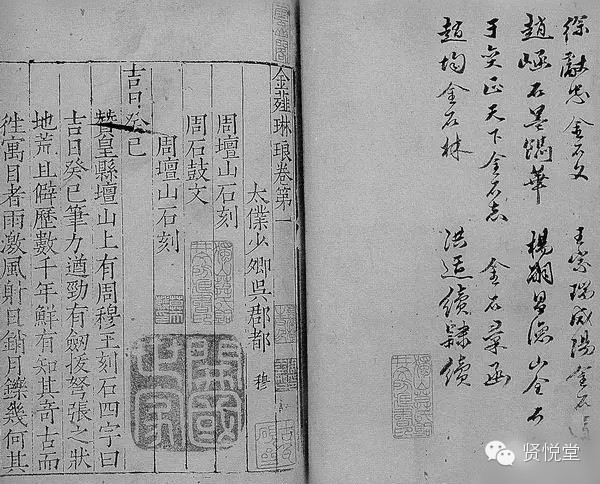 徐獻忠金石文 王家瑞咸陽金石
趙崡石墨鐫華 楊嗣昌山金石
于奕正天下金石志 金石彙函
趙均金石林 洪适續隸續
金薤琳琅卷第一
太僕少卿吳郡都 穆
周壇山石刻
周石鼓文
周壇山石刻
吉日癸巳
贊皇縣壇山上有周穆王刻石四字曰
吉日癸巳筆力遒勁有劒拔弩張之狀
地荒且僻歷數千年鮮有知其奇古而
徃寓目者雨激風射日銷月鑠幾何其
開國世家
贤悦堂